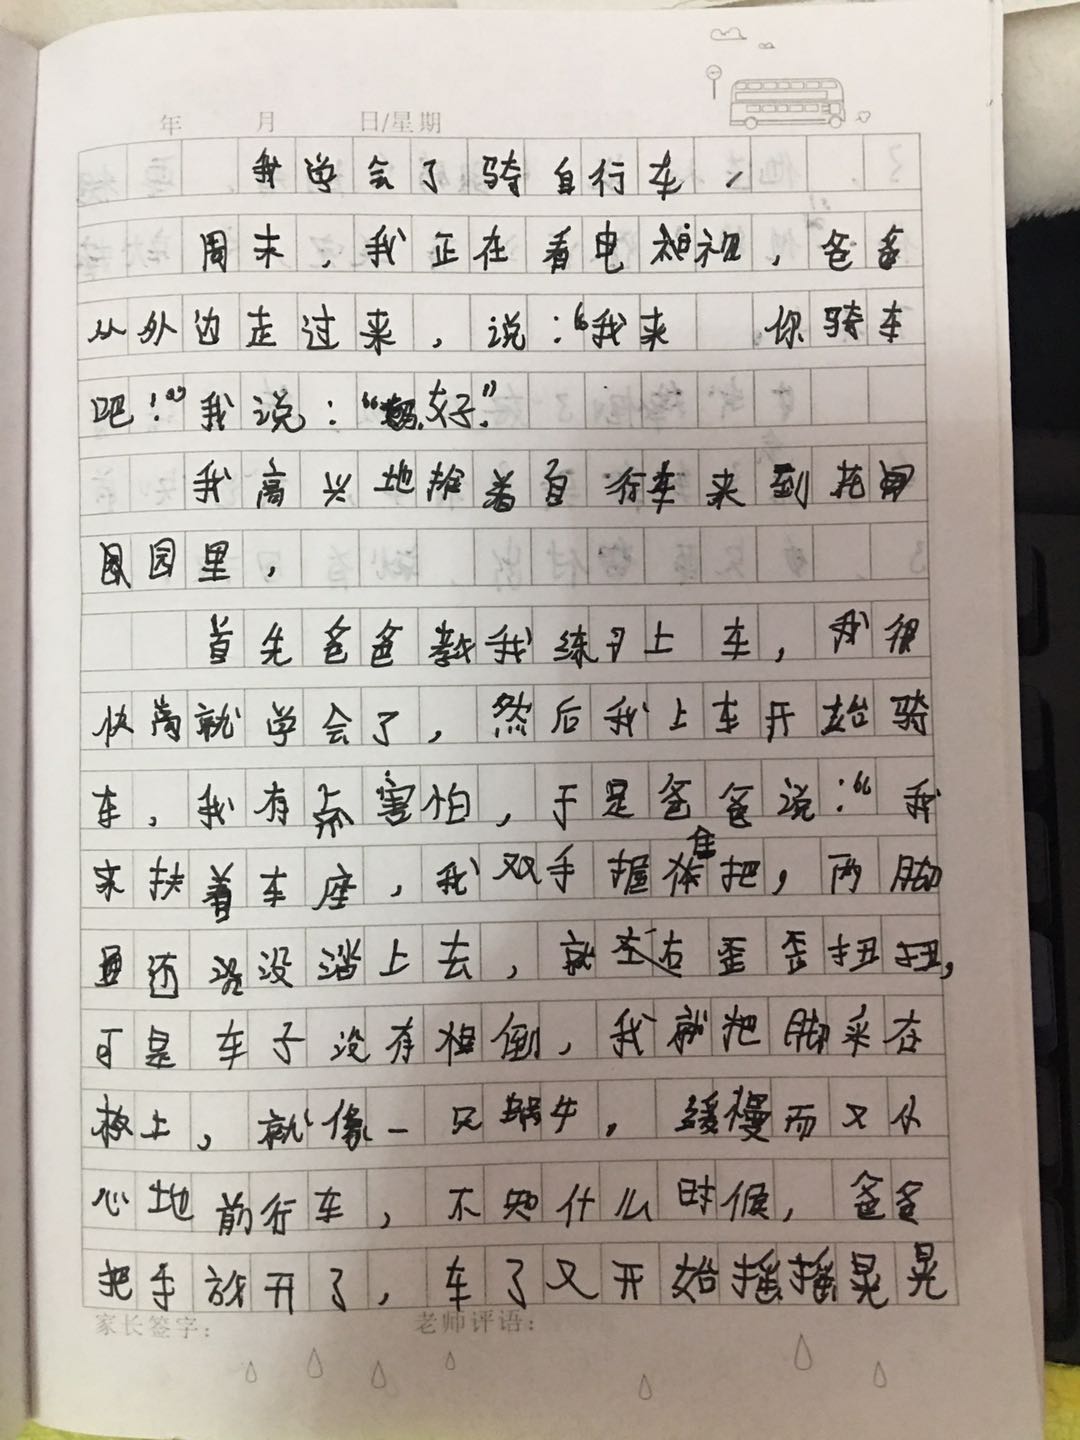 年 月 日/星期
我学会了骑自行车,
周末,我正在看电视,爸爸
从外边走过来,说:“我来 你骑车
吧!”我说:“好”
我高兴地推着自行车来到花
园里,
首先爸爸教我练习上车,我很
快就学会了,然后我上车开始骑
车,我有点害怕,于是爸爸说:“我
来扶着车座,我双手握住把,两脚
还没踏上去,就左右歪歪扭扭,
可是车子没有倒,我就把脚采在
板上,就像一只蜗牛,缓慢而又小
心地前行车,不知什么时候,爸爸
把手放开了,车了又开始摇摇晃晃
家长签字: 老师评语: